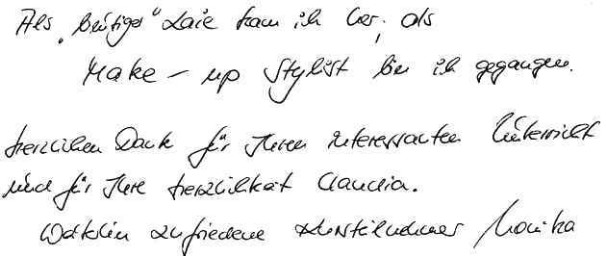 Als „blutiger" Laie kam ich her, als
Make-up Stylist bin ich gegangen.
Herzlichen Dank für Ihren interessanten Unterricht
und für Ihre Herzlichkeit Claudia.
zufriedene Kursteilnehmer Monika